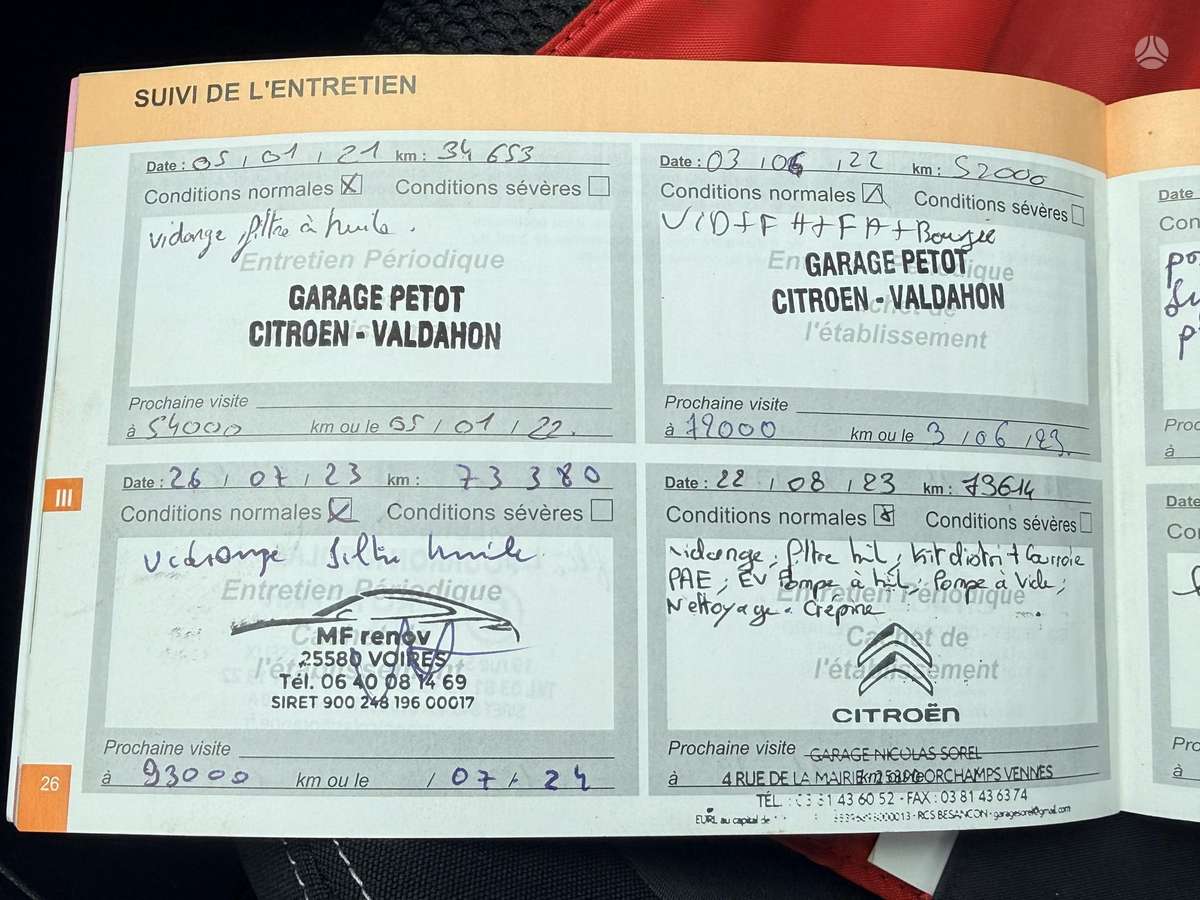 SUIVI DE L'ENTRETIEN
Date : 05 / 01 / 21 km : 34 653
Conditions normales Conditions sévères
vidange filtre à huile.
Entretien Périodique
GARAGE PETOT
CITROEN - VALDAHON
Prochaine visite
à 54000 km ou le 05 / 01 / 22.
Date : 03 / 06 / 22 km : 52000
Conditions normales Conditions sévères
VID + F H + F A + Bougie
GARAGE PETOT
CITROEN - VALDAHON
l'établissement
Prochaine visite
à 72000 km ou le 3 / 06 / 23.
Date : 26 / 07 / 23 km : 73 380
Conditions normales Conditions sévères
vidange filtre huile
Entretien Périodique
MF renov
25580 VOIRES
Tél. 06 40 08 14 69
SIRET 900 248 196 00017
Prochaine visite
à 93000 km ou le / 07 / 24
Date : 22 / 08 / 23 km : 73614
Conditions normales Conditions sévères
vidange, filtre huil, kit distri + Courroie
PAE ; EV Pompe à huil ; Pompe à Vide ;
Nettoyage. Crépine
Entretien Périodique
Cachet de
l'établissement
CITROËN
Prochaine visite GARAGE NICOLAS SOREL
à 4 RUE DE LA MAIRIE 25390 ORCHAMPS VENNES
TÉL. : 03 81 43 60 52 - FAX : 03 81 43 63 74
EURL au capital de RCS BESANCON - garagesorel@gmail.com
III
26
Date
Con
Proc
à
Date
Co
Pro
à